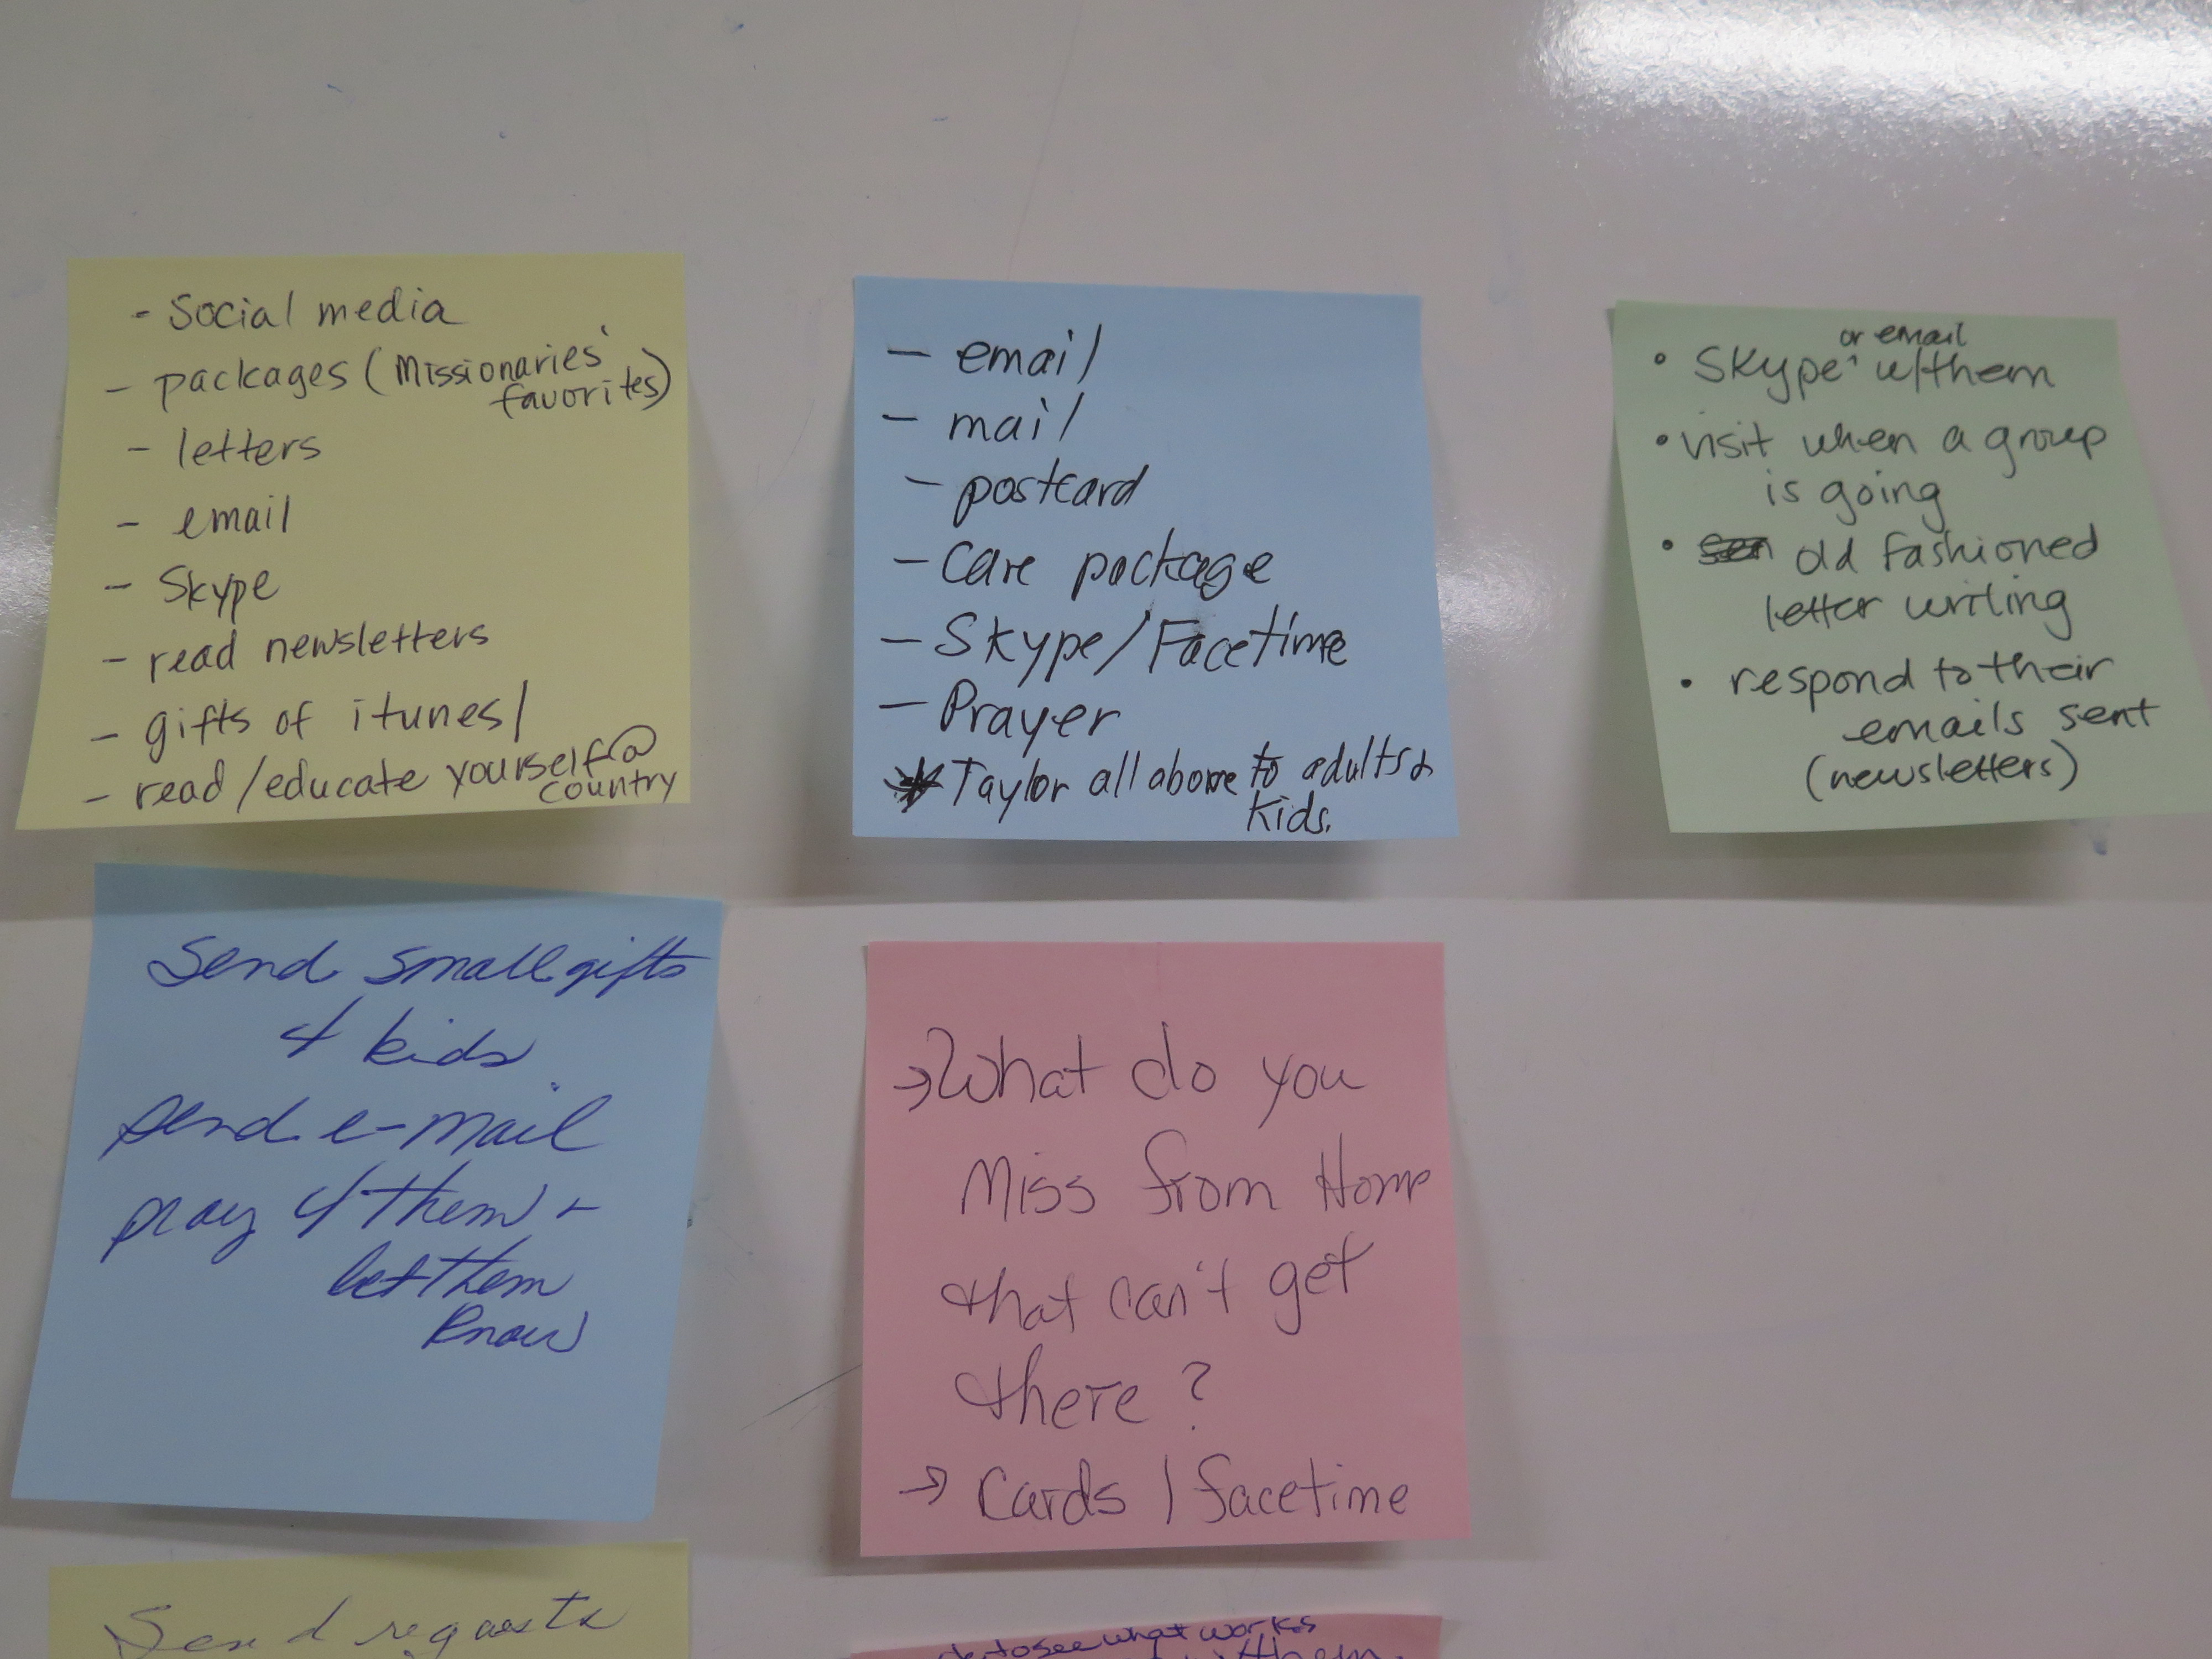 - Social media
- packages (Missionaries'
favorites)
- letters
- email
- Skype
- read newsletters
- gifts of itunes/
- read/educate yourself @
country
- email
- mail
- postcard
- Care package
- Skype/Facetime
- Prayer
* Taylor all above to adults &
kids.
or email
• Skype ^ w/them
• visit when a group
is going
• old fashioned
letter writing
• respond to their
emails sent
(newsletters)
Send small gifts
4 kids
send e-mail
pray 4 them +
let them
know
→ What do you
Miss from Home
that can't get
there?
→ Cards / facetime
Send requests
to see what works